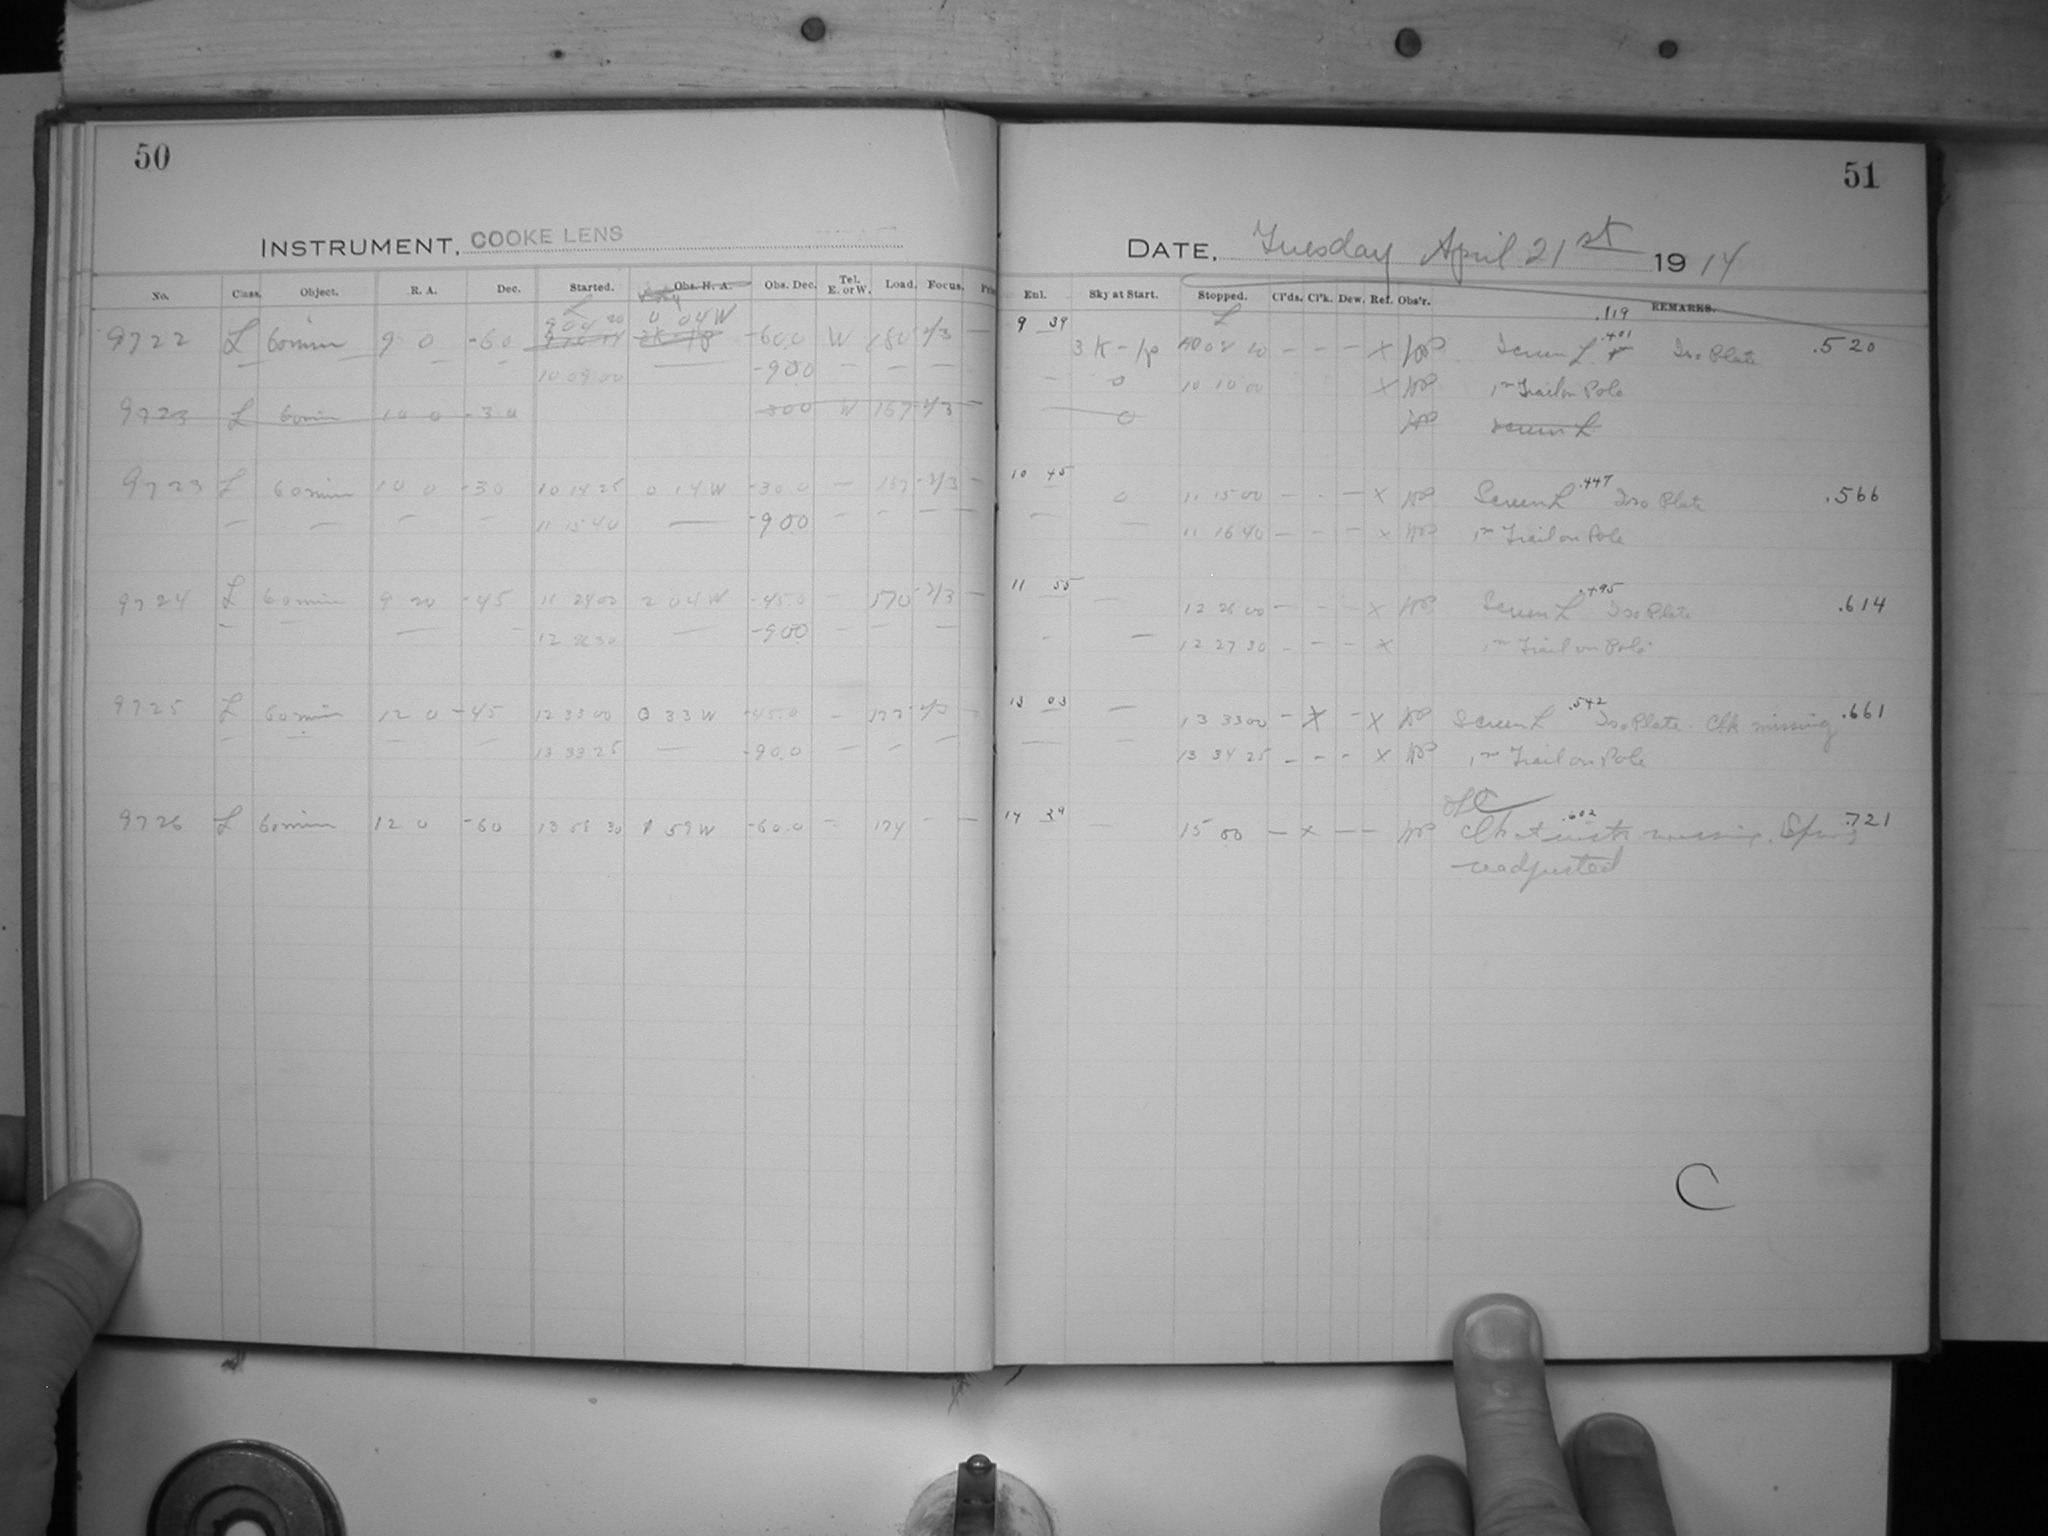 50
INSTRUMENT, COOKE LENS
No. Class. Object. R. A. Dec. Started. Obs. H. A. Obs. Dec. Tel. E. or W. Load. Focus.
L
9 04 20 0 04 W
9722 L 60 min 9 0 -60 -60.0 W 180 -2/3 —
— — — — 10 09 00 — -90.0 — — —
9723 L 60 min 10 0 -30 -30.0 W 167 -2/3 —
9723 L 60 min 10 0 -30 10 14 25 0 14 W -30.0 — 167 -2/3 —
— — — — 11 15 40 — -90.0 — — — —
9724 L 60 min 9 20 -45 11 24 00 2 04 W -45.0 — 170 -2/3 —
— — — — 12 26 30 — -90.0 — — —
9725 L 60 min 12 0 -45 12 33 00 0 33 W -45.0 — 172 -2/3 —
— — — — 13 33 25 — -90.0 — — —
9726 L 60 min 12 0 -60 13 58 30 1 59 W -60.0 — 174 — —
51
DATE, Tuesday April 21st 1914
Enl. Sky at Start. Stopped. Cl'ds. Cl'k. Dew. Ref. Obs'r. REMARKS.
L .119
9 39 .401
3 K - 10 08 20 — — — X Screen L Iso Plate .520
— 0 10 10 00 X 1m Trail on Pole
— 0 Screen L
10 45 .447
0 11 15 00 — — — X Screen L Iso Plate .566
— — 11 16 40 — — — X 1m Trail on Pole
11 55 .495
— 12 26 00 — — — X Screen L Iso Plate .614
— — 12 27 30 — — — X 1m Trail on Pole
13 03 .542
— 13 33 00 — X — X Screen L Iso Plate. Clk missing .661
— — 13 34 25 — — — X 1m Trail on Pole
14 29 .602
— 15 00 — X — — Clk missing. Spring .721
readjusted
C